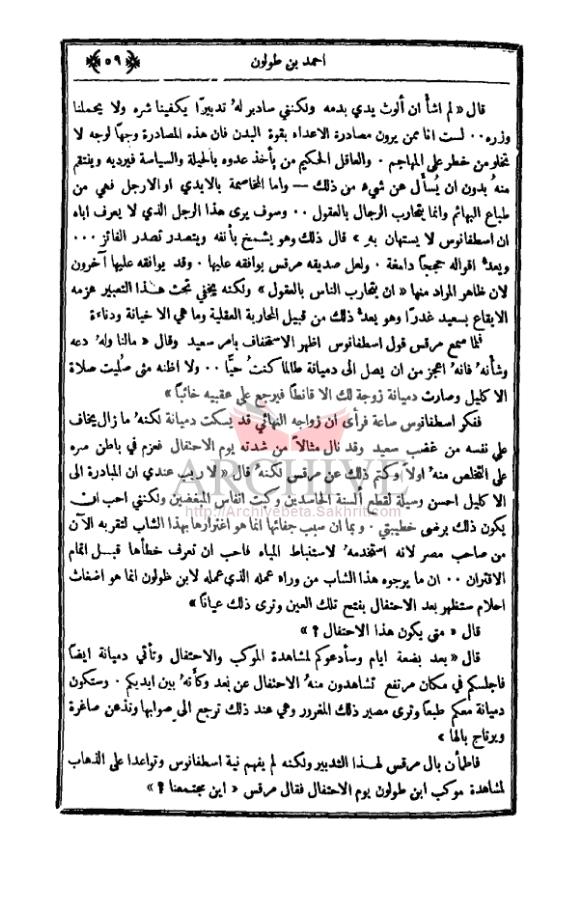 احمد بن طولون
﴿٥٩﴾
قال « لم اشأ ان ألوث يدي بدمه ولكنني سادبر لهُ تدبيرًا يكفينا شره ولا يحملنا
وزره ٠٠ لست انا ممن يرون مصادرة الاعداء بقوة البدن فان هذه المصادرة وجهًا لوجه لا
تخلو من خطر على المهاجم ٠ والعاقل الحكيم من يأخذ عدوه بالحيلة والسياسة فيرديه وينتقم
منهُ بدون ان يُسأل عن شيء من ذلك — واما المخاصمة بالايدي او الارجل فهي من
طباع البهائم وانما يتحارب الرجال بالعقول ٠٠ وسوف يرى هذا الرجل الذي لا يعرف اباه
ان اسطفانوس لا يستهان بهِ » قال ذلك وهو يشمخ بأنفه ويتصدر تصدر الفائز ٠٠٠
ويعدُّ اقواله حججًا دامغة ٠ ولعل صديقه مرقس يوافقه عليها ٠ وقد يوافقه عليها آخرون
لان ظاهر المراد منها « ان يتحارب الناس بالعقول » ولكنه يخفي تحت هذا التعبير عزمه
الايقاع بسعيد غدرًا وهو يعدُّ ذلك من قبيل المحاربة العقلية وما هي الا خيانة ودناءة
فلما سمع مرقس قول اسطفانوس اظهر الاستخفاف بامر سعيد وقال « مالنا ولهُ دعه
وشأنهُ فانهُ اعجز من ان يصل الى دميانة طالما كنتُ حيًّا ٠٠ ولا اظنه متى صُليت صلاة
الاكليل وصارت دميانة زوجة لك الا قانطًا فيرجع على عقبيه خائبًا »
ففكر اسطفانوس ساعة فرأى ان زواجه النهائي قد يسكت دميانة لكنهُ ما زال يخاف
على نفسه من غضب سعيد وقد نال مثالًا من شدته يوم الاحتفال فعزم في باطن سره
على التخلص منهُ اولًا وكتم ذلك عن مرقس لكنهُ قال « لا ريب عندي ان المبادرة الى
الاكليل احسن وسيلة لقطع ألسنة الحاسدين وكبت انفاس المبغضين ولكنني احب ان
يكون ذلك برضى خطيبتي ٠ وبما ان سبب جفائها انما هو اغترارها بهذا الشاب لتقربه الآن
من صاحب مصر لانه استخدمهُ لاستنباط المياه فاحب ان تعرف خطأها قبل اتمام
الاقتران ٠٠ ان ما يرجوه هذا الشاب من وراء عمله الذي عمله لابن طولون انما هو اضغاث
احلام ستظهر بعد الاحتفال بفتح تلك العين وترى ذلك عيانًا »
قال « متى يكون هذا الاحتفال ؟ »
قال « بعد بضعة ايام وسأدعوكم لمشاهدة الموكب والاحتفال وتأتي دميانة ايضًا
فاجلسكم في مكان مرتفع تشاهدون منهُ الاحتفال عن بعد وكأنهُ بين ايديكم ٠ وستكون
دميانة معكم طبعًا وترى مصير ذلك المغرور وهي عند ذلك ترجع الى صوابها وتذعن صاغرة
ويرتاح بالها »
فاطمأن بال مرقس لهذا التدبير ولكنه لم يفهم نية اسطفانوس وتواعدا على الذهاب
لمشاهدة موكب ابن طولون يوم الاحتفال فقال مرقس « اين مجتمعنا ؟ »
ARCHIVE
http://Archivebeta.Sakhrit.com